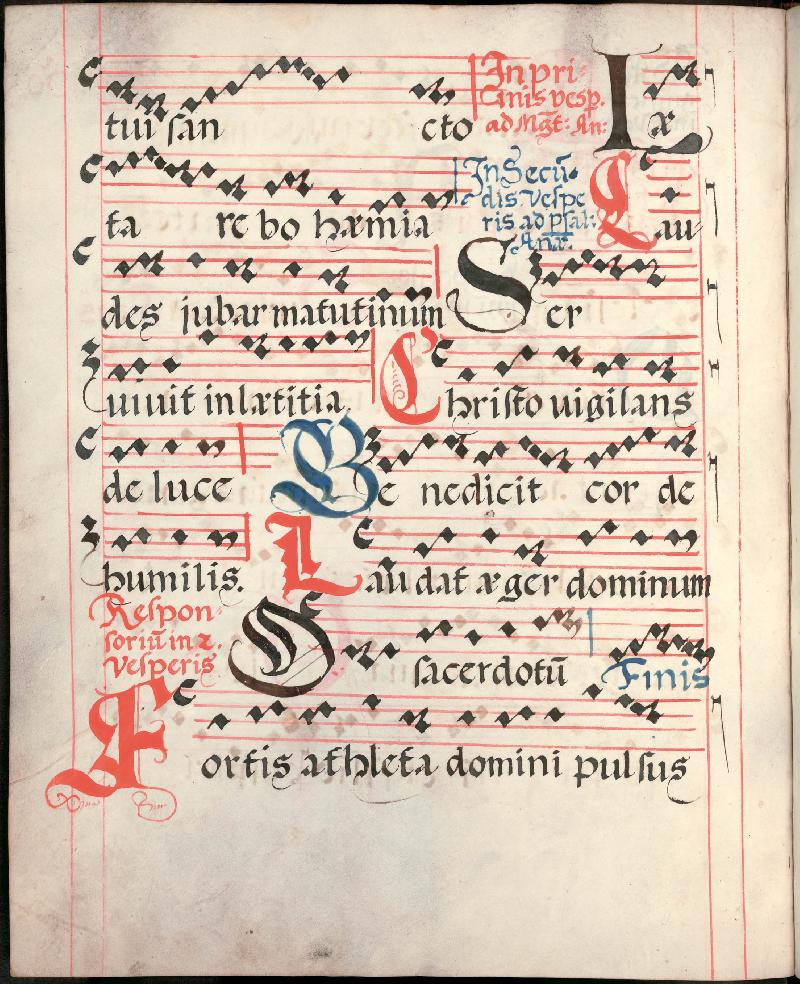 tui san cto In pri-
mis vesp.
ad Mg̃t: An: Læ
ta re bo hæmia In Secũ-
dis Vespe
ris ad psal:
Anæ. Lau-
des jubar matutinum Ser
uiuit in lætitia, Christo uigilans
de luce Be nedicit cor de
humilis. Laudat æger dominum
Respon-
soriũ in 2.
Vesperis O sacerdotũ Finis
Fortis athleta domini pulsus